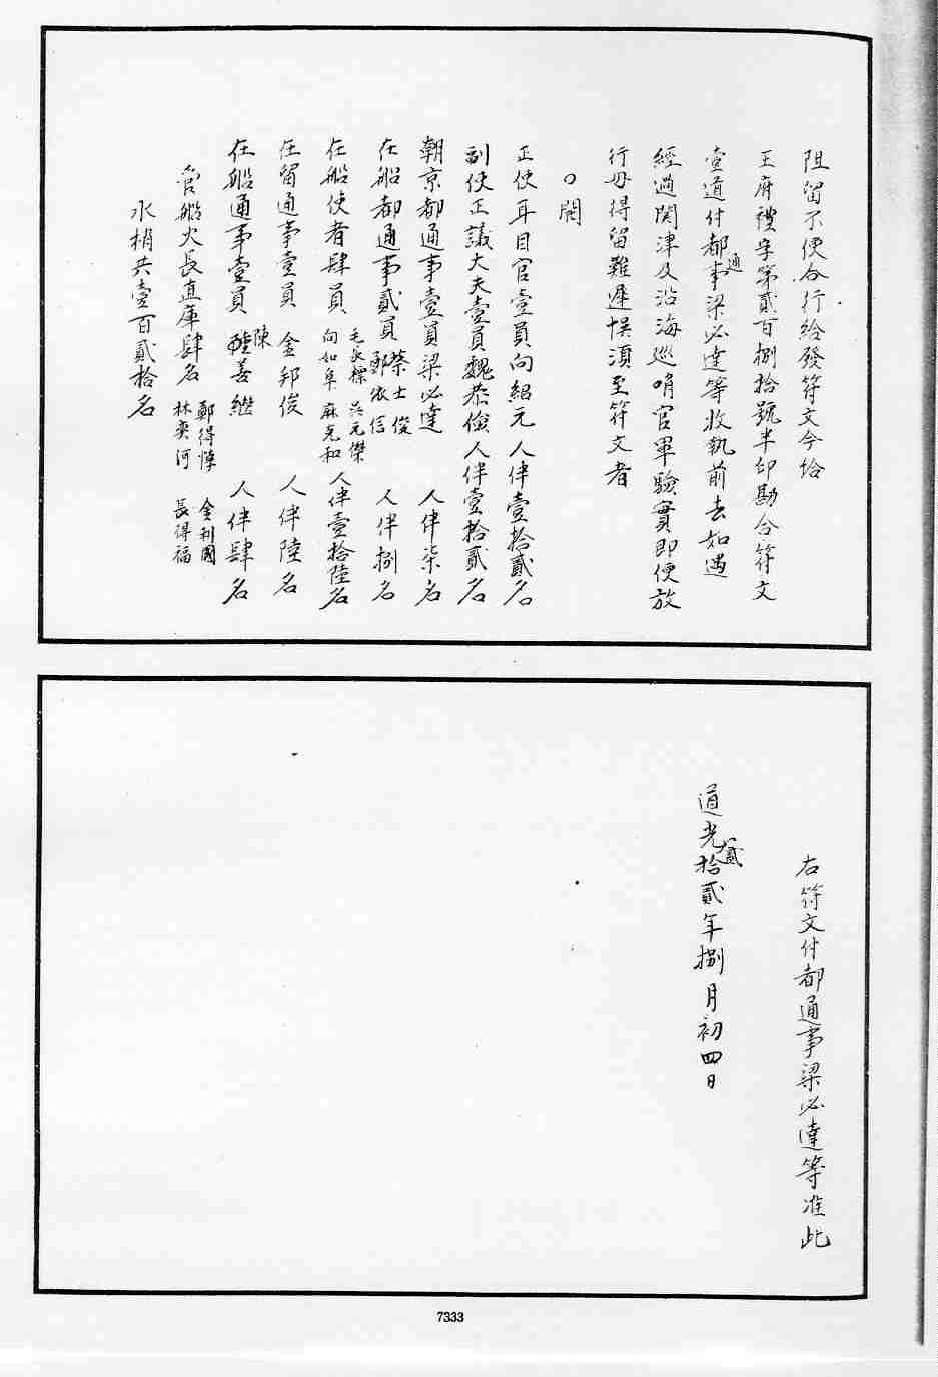 阻留不便合行給發符文今給
王府禮字第貳百捌拾號半印勘合符文
壹道付都通事梁必達等收執前去如遇
經過関津及沿海巡哨官軍驗實即便放
行毋得留難遲悮須至符文者
〇開
正使耳目官壹員向紹元 人伴壹拾貳名
副使正議大夫壹員魏恭儉人伴壹拾貳名
朝京都通事壹員梁必達 人伴柒名
在船都通事貳員 蔡士俊 鄭依信 人伴捌名
在船使者肆員 毛長標 吳元傑 向如阜 麻克和 人伴壹拾陸名
在留通事壹員 金邦俊 人伴陸名
在船通事壹員 陳 善継 人伴肆名
管船火長直庫肆名 鄭得惇 金利國 林奕河 長得福
水梢共壹百貳拾名
右符文付都通事梁必達等准此
道光拾貳年捌月初四日
貳
7333